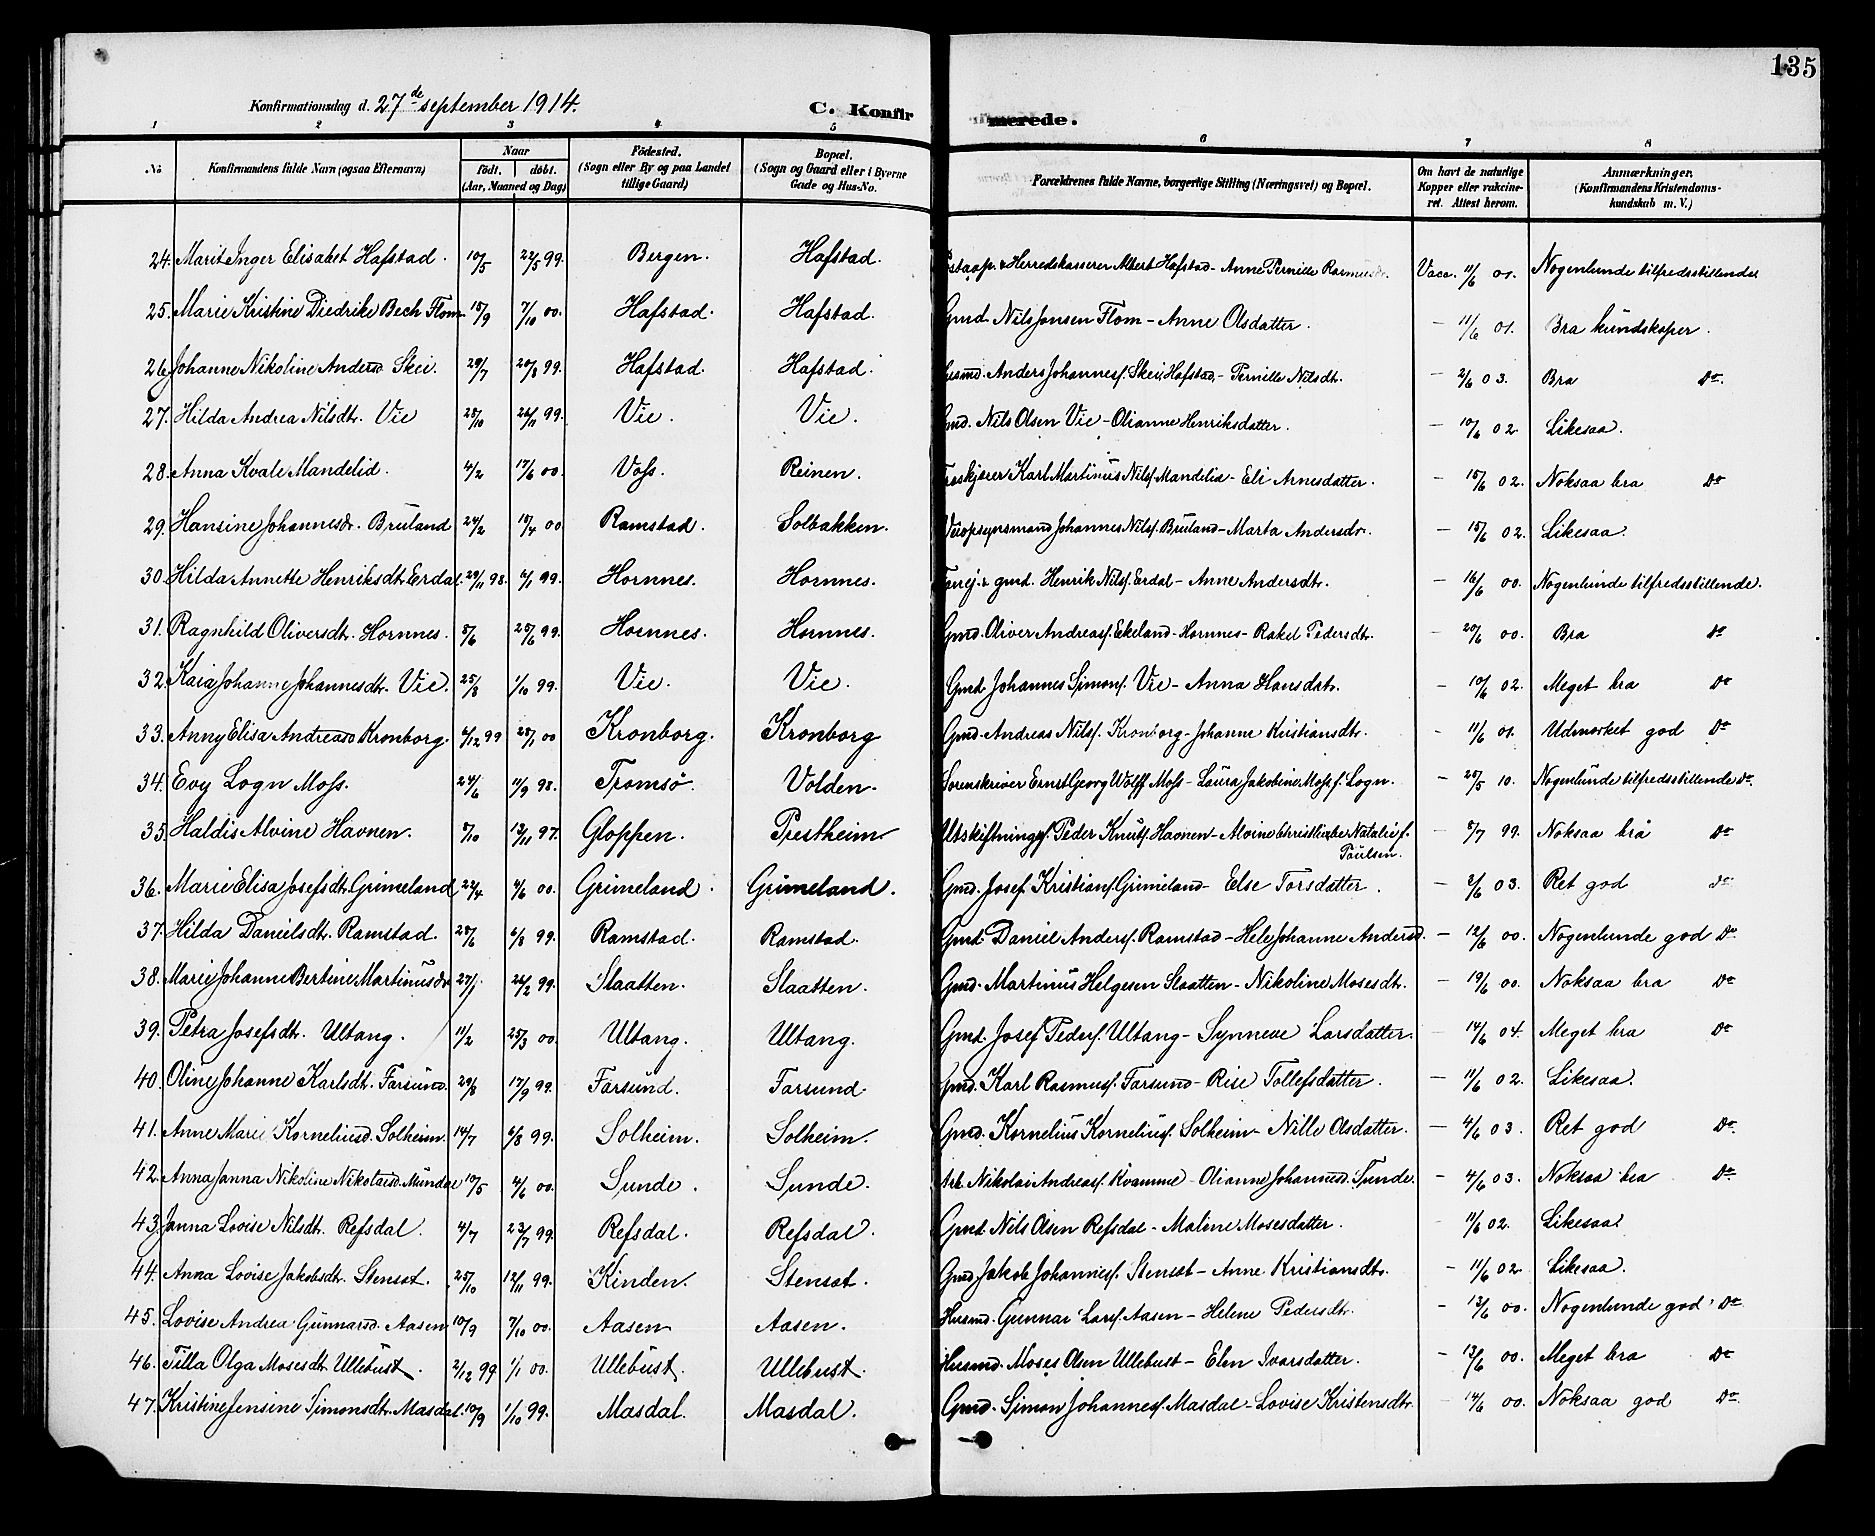 135
Konfirmationsdag d. 27de september 1914.
C. Konfirmerede.
1 2 3 4 5 6 7 8
No Konfirmandens fulde Navn (ogsaa Efternavn) Naar födt. döbt. (Aar, Maaned og Dag) Födested. (Sogn eller By og paa Landet tillige Gaard) Bopæl. (Sogn og Gaard eller i Byerne Gade og Hus-No. Forældrenes fulde Navne, borgerlige Stilling (Næringsvei) og Bopæl. Om havt de naturlige Kopper eller vakcineret. Attest herom. Anmærkninger. (Konfirmandens Kristendomskundskab m. V.)
24. Marit Inger Elisabet Hafstad. 10/5 22/5 99. Bergen. Hafstad. & Herredskasserer Albert Hafstad - Anne Pernille Vacc. 11/6 01. Nogenlunde tilfredsstillende
25. Marie Kristine Diedrike Bech Flom 15/9 7/10 00. Hafstad. Hafstad. Gmd. Nils Jonsen Flom - Anne Olsdatter. - 11/6 01. Bra kundskaper.
26. Johanne Nikoline Andersd Skei. 28/7 20/8 99. Hafstad. Hafstad. Husmd. Anders Johannesf. Skei, Hafstad - Pernille Nilsdt. - 2/6 03. Bra Do.
27. Hilda Andrea Nilsdtr. Vie 28/10 26/11 99. Vie. Vie. Gmd. Nils Olsen Vie - Olianne Henriksdatter. - 10/6 02 Likesaa.
28. Anna Kvale Mandelid. 4/2 17/6 00. Voss. Reinen. Karl Martinus Nilsf. Mandelid - Eli Arnesdatter. - 15/6 02. Noksaa bra Do
29. Hansine Johannesdr. Bruland 24/2 15/4 00 Ramstad. Solbakken. Veiopsynsmand Johannes Nilsf. Bruland - Marta Andersdr. - 15/6 02. Likesaa.
30. Hilda Annette Henriksdt. Erdal. 29/11 98. 6/1 99. Hornnes. Hornnes. & gmd. Henrik Nilsf. Erdal - Anne Andersdtr. - 16/6 00. Nogenlunde tilfredsstillende.
31. Ragnhild Oliversdtr. Hornnes. 5/6 25/6 99. Hornnes. Hornnes. Gmd. Oliver Andreasf. Eikeland - Hornnes - Rakel Pedersdtr. - 20/6 00. Bra Do
32. Kaia Johanne Johannesdtr. Vie. 25/8 1/10 99. Vie. Vie. Gmd. Johannes Simonf. Vie - Anna Hansdatr. - 10/6 02. Meget bra Do
33. Anny Elisa Andreasd Kronborg. 6/12 99 28/1 00 Kronborg. Kronborg Gmd. Andreas Nilsf. Kronborg - Johanne Kristiansdtr. - 11/6 01. Udmerket god Do
34. Evy Logn Moss. 24/6 11/9 98. Tromsö. Volden. Sorenskriver Ernst Georg Wolff Moss - Laura Jakobine Moss f. Logn. - 25/5 10. Nogenlunde tilfredsstillende Do.
35. Haldis Alvine Havnen. 8/10 12/11 97. Gloppen. Prestheim Utskiftningsf. Peder Knutsf. Havnen - Alvine Christine Natalie f. Paulsen. - 8/7 99. Noksaa bra Do
36. Marie Elisa Josefsdt. Grimeland 22/4 4/6 00. Grimeland. Grimeland. Gmd. Josef Kristianf. Grimeland - Else Torsdatter. - 2/6 03. Ret god Do
37. Hilda Danielsdtr. Ramstad. 28/6 6/8 99. Ramstad. Ramstad. Gmd. Daniel Andersf. Ramstad - Hele Johanne Andersd. - 12/6 00. Nogenlunde god Do
38. Marie Johanne Bertine Martinusdr 27/1. 26/2 99. Slaatten. Slaatten. Gmd. Martinus Helgesen Slaatten - Nikoline Mosesdtr. - 19/6 00. Noksaa bra Do
39. Petra Josefsdtr. Ultang. 11/2 25/3 00. Ultang. Ultang. Gmd. Josef Pedersf. Ultang - Synneve Larsdatter. - 14/6 04. Meget bra Do
40. Oline Johanne Karlsdt. Farsund. 29/8 17/9 99. Farsund. Farsund. Gmd. Karl Rasmusf. Farsund - Rise Tollefsdatter. - 11/6 02. Likesaa.
41. Anne Marie Korneliusd. Solheim. 14/7 6/8 99. Solheim. Solheim. Gmd. Kornelius Korneliusf. Solheim - Nille Olsdatter. - 4/6 03. Ret god Do.
42. Anna Janna Nikoline Nikolaisd. Mundal 10/5 4/6 00. Sunde. Sunde. Arb. Nikolai Andreasf. Kvamme - Olianne Johannesd. Sunde. - 4/6 03. Noksaa bra Do
43. Janna Lovise Nilsdtr. Refsdal. 4/7 23/7 99. Refsdal. Refsdal. Gmd. Nils Olsen Refsdal - Maline Mosesdatter. - 11/6 02. Likesaa
44. Anna Lovise Jakobsdtr. Stenset. 25/10 12/11 99. Kinden. Stenset. Gmd. Jakob Johannesf. Stenset - Anne Kristiansdtr. - 11/6 02. Likesaa.
45. Lovise Andrea Gunnarsd. Aasen 10/9 7/10 00. Aasen Aasen. Husmd. Gunnar Larsf. Aasen - Helene Pedersdtr. - 13/6 00. Nogenlunde god Do
46. Tilla Olga Mosesdtr Ullebust. 2/12 99 1/1 00. Ullebust. Ullebust. Husmd. Moses Olsen Ullebust - Elen Ivarsdatter. - 13/6 00. Meget bra Do
47. Kristine Jensine Simonsdtr. Masdal. 10/9 1/10 99. Masdal. Masdal. Gmd. Simon Johannesf. Masdal - Lovise Kristensdtr. - 14/6 00. Noksaa god Do